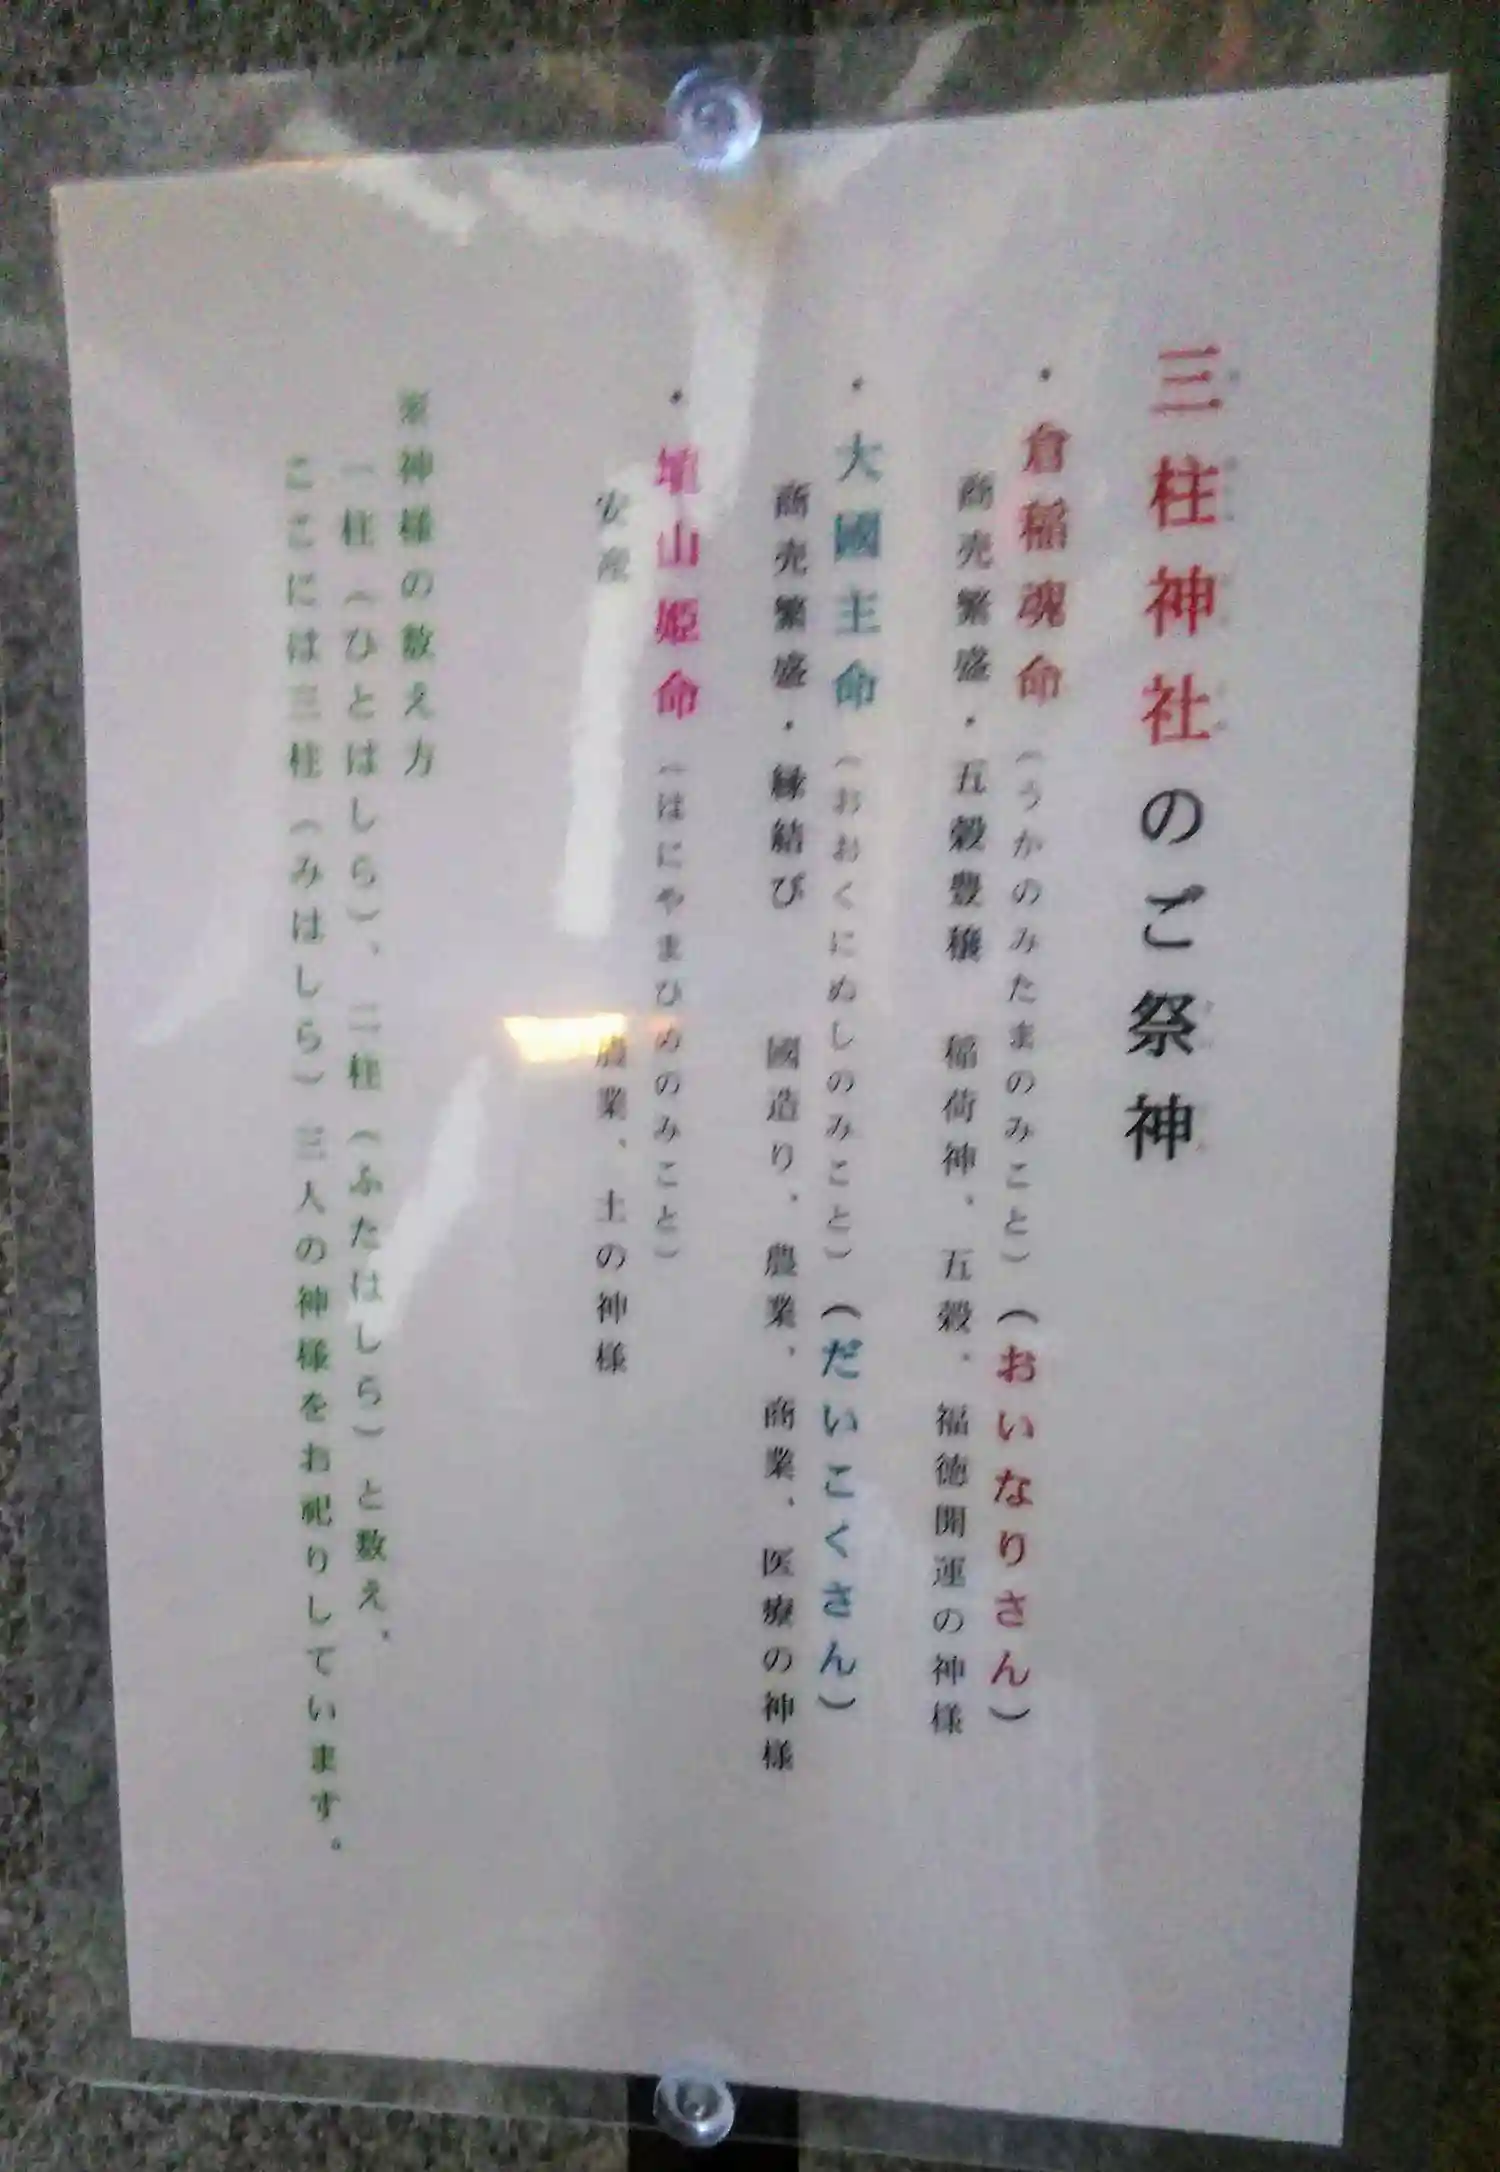 三柱神社のご祭神
・倉稲魂命（うかのみたまのみこと）（おいなりさん）
商売繁盛・五穀豊穣　稲荷神、五穀、福徳開運の神様
・大國主命（おおくにぬしのみこと）（だいこくさん）
商売繁盛・縁結び　國造り、農業、商業、医療の神様
・埴山姫命（はにやまひめのみこと）
安産　農業、土の神様
※神様の数え方
一柱（ひとはしら）、二柱（ふたはしら）と数え、
ここには三柱（みはしら）三人の神様をお祀りしています。